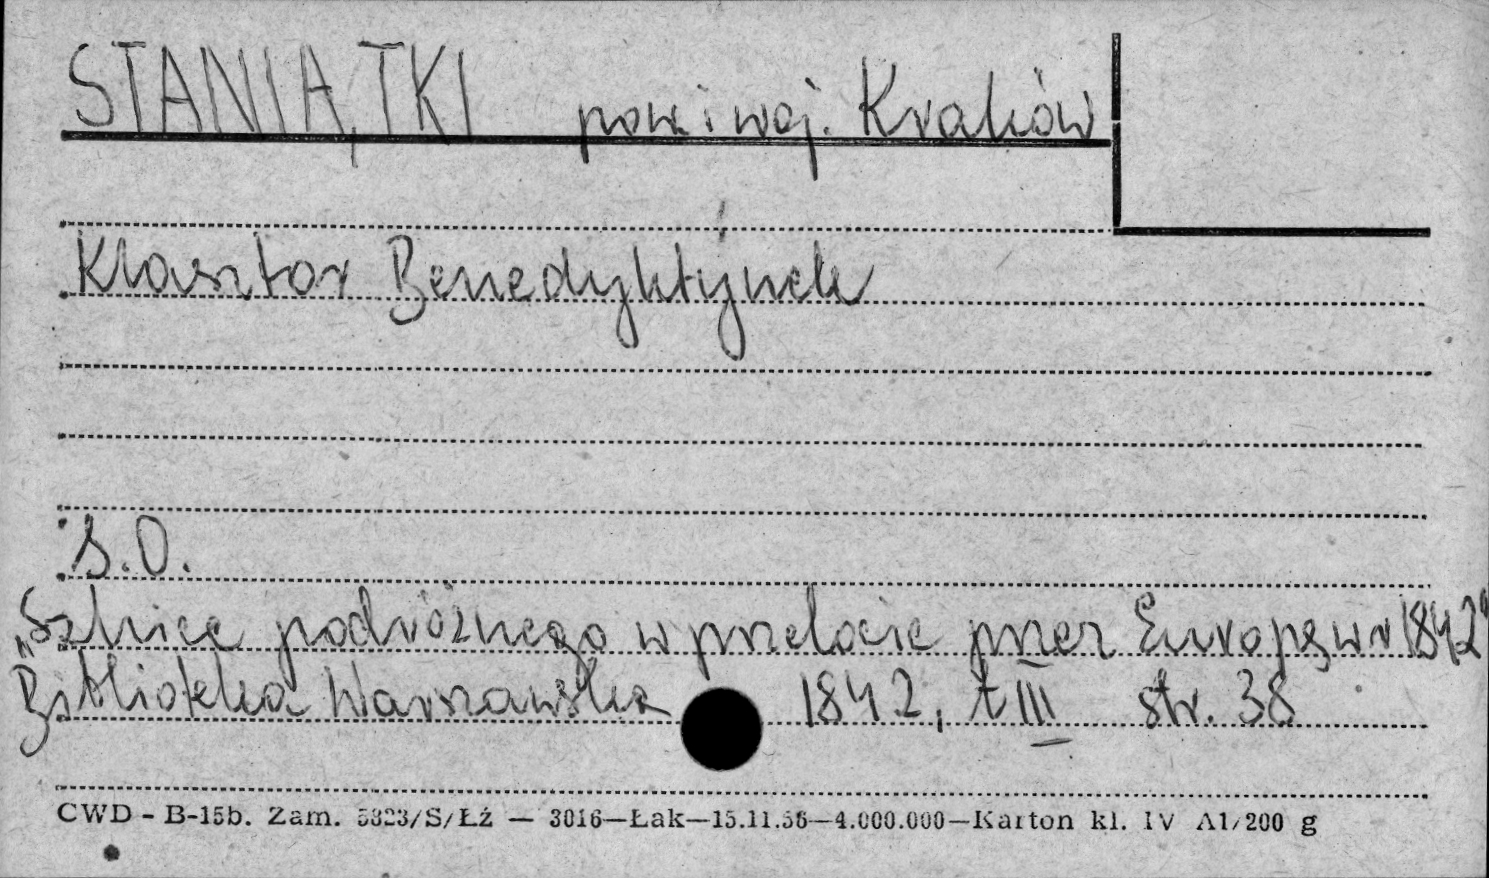 STANIĄTKI pow. i woj. Kraków
Klasztor Benedyktynek
S.O.
„Szkice podróżnego w przelocie przez Europę w r 1842"
Biblioteka Warszawska 1842, t III str. 38
CWD - B-15b. Zam. 5323/S/Łź — 3016—Łak—15.11.56—4.000.000—Karton kl. IV A1/200 g